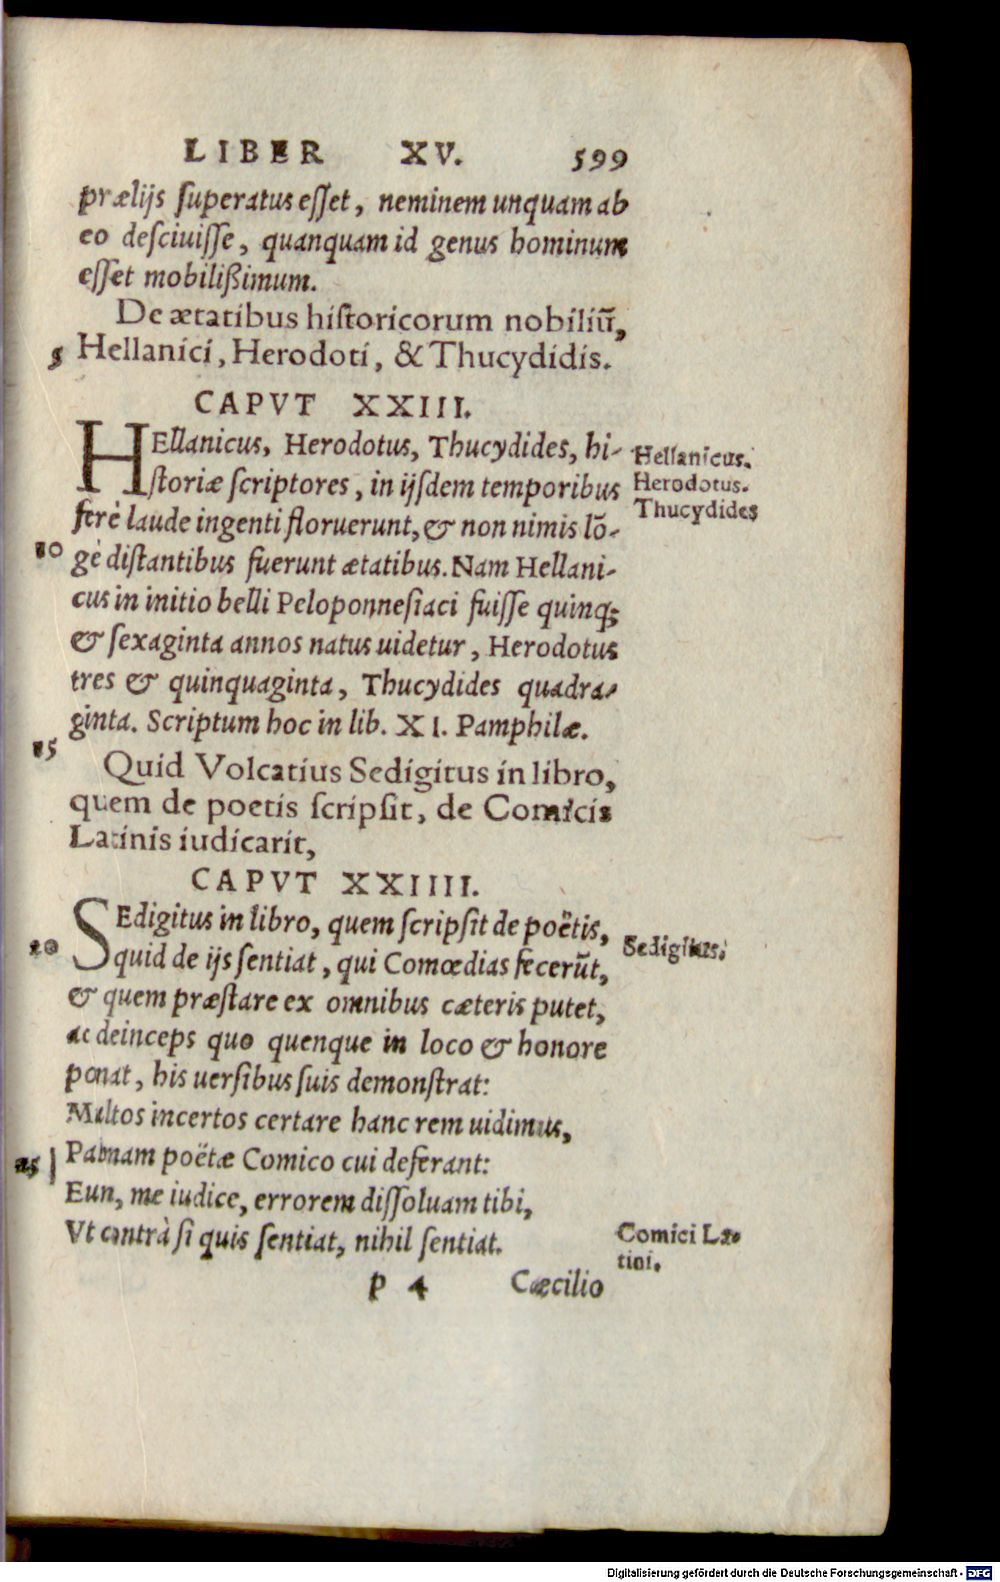 LIBER XV. 599
prælijs ſuperatus eſſet, neminem unquam ab
eo deſciuiſſe, quanquam id genus hominum
eſſet mobilißimum.
De ætatibus hiſtoricorum nobiliũ,
5 Hellanici, Herodoti, & Thucydidis.
CAPVT XXIII.
HEllanicus, Herodotus, Thucydides, hi-
ſtoriæ ſcriptores, in ijſdem temporibus
ferè laude ingenti floruerunt, & non nimis lõ-
10 gè diſtantibus fuerunt ætatibus. Nam Hellani-
cus in initio belli Peloponneſiaci fuiſſe quinq;
& ſexaginta annos natus uidetur, Herodotus
tres & quinquaginta, Thucydides quadra-
ginta. Scriptum hoc in lib. XI. Pamphilæ.
15
Hellanicus.
Herodotus.
Thucydides
Quid Volcatius Sedigitus in libro,
quem de poetis ſcripſit, de Comicis
Latinis iudicarit,
CAPVT XXIIII.
SEdigitus in libro, quem ſcripſit de poëtis,
20 quid de ijs ſentiat, qui Comœdias fecerũt,
& quem præſtare ex omnibus cæteris putet,
ac deinceps quo quenque in loco & honore
ponat, his uerſibus ſuis demonſtrat:
Multos incertos certare hanc rem uidimus,
25 Palmam poëtæ Comico cui deferant:
Eun, me iudice, errorem diſſoluam tibi,
Vt contrà ſi quis ſentiat, nihil ſentiat.
Sedigitus.
Comici La-
tini.
p 4 Cæcilio
Digitalisierung gefördert durch die Deutsche Forschungsgemeinschaft - DFG